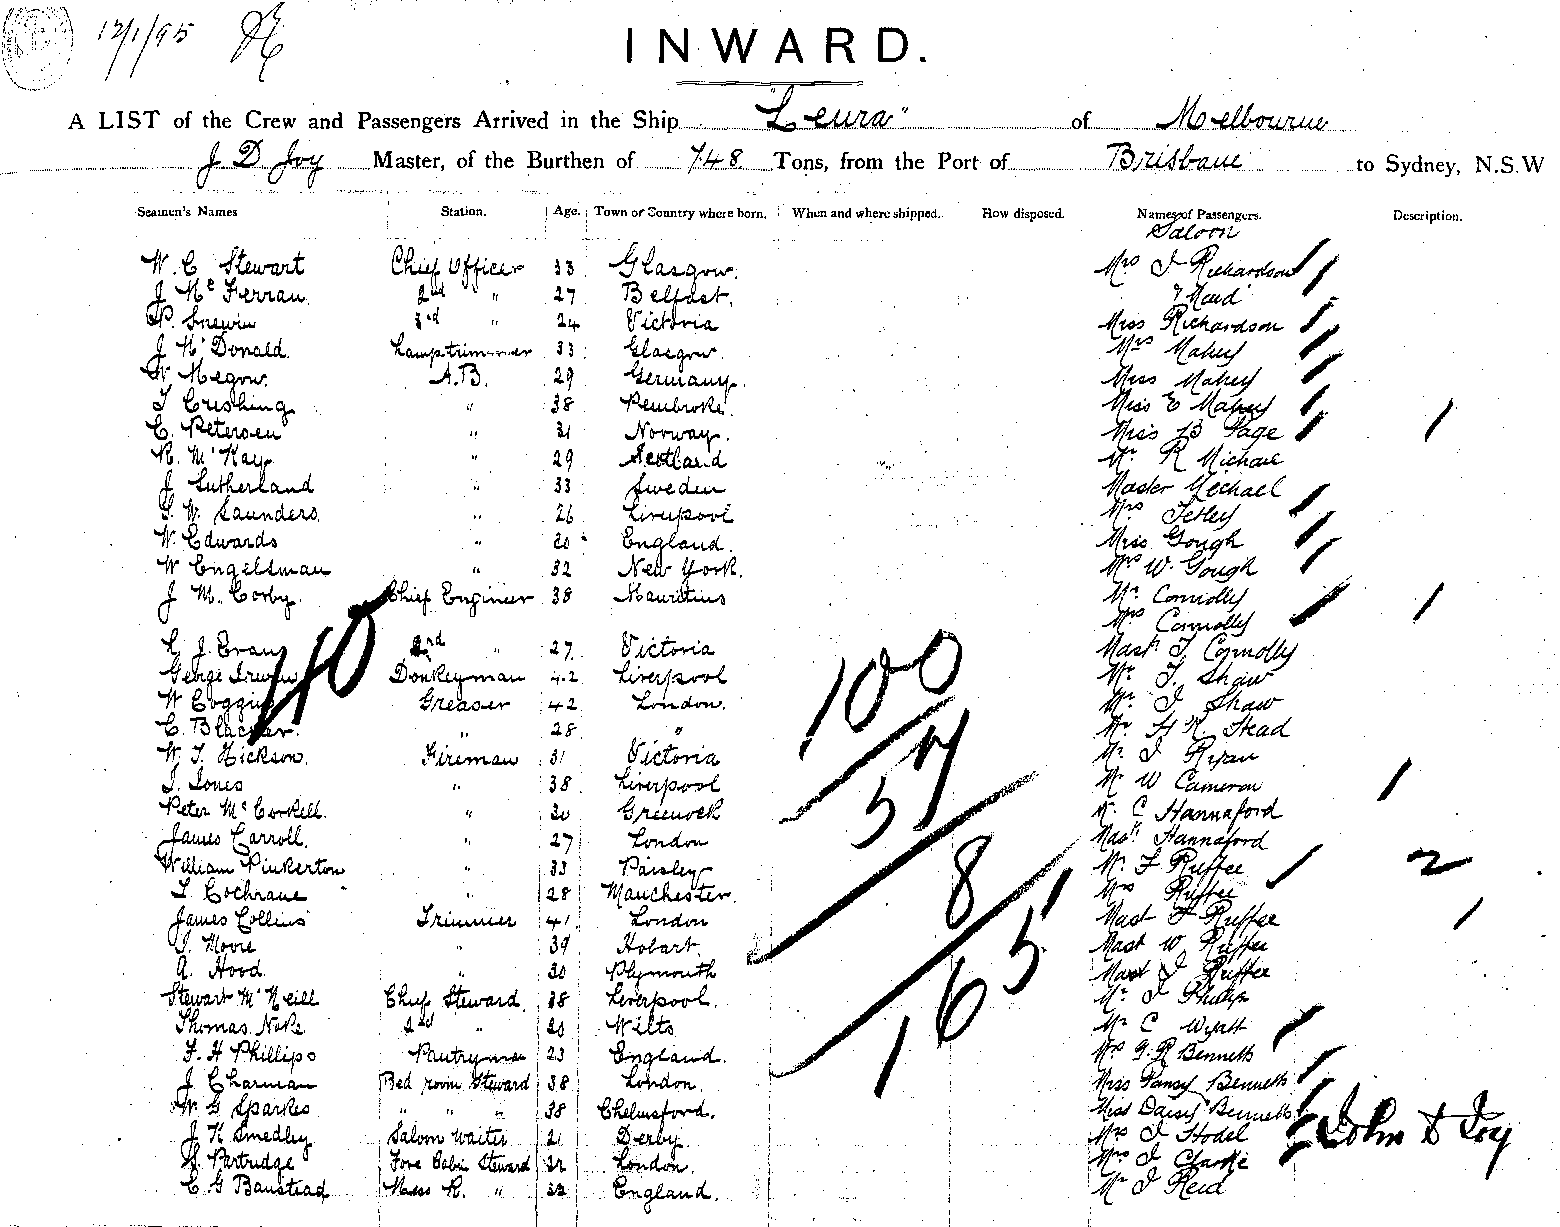 12/1/95
INWARD.
A LIST of the Crew and Passengers Arrived in the Ship "Leura" of Melbourne
J D Joy Master, of the Burthen of 748 Tons, from the Port of Brisbane to Sydney, N.S.W
Seamen's Names Station. Age. Town or Country where born. When and where shipped. How disposed. Names of Passengers. Description.
Saloon
W. C Stewart Chief Officer 33 Glasgow. Mrs J Richardson
J Mc Ferran. 2nd " 27 Belfast. & Maid
P. 3rd " 24 Victoria Miss Richardson
J McDonald. Lamptrimmer 33 Glasgow. Mrs Makey
W Megow. A.B. 29 Germany. Miss Makey
T Cushing " 38 Pembroke. Miss E Makey
C. Petersen " 31 Norway. Miss B Page
R. McKay " 29 Scotland Mr R Michael
J Sutherland " 33 Sweden Master Michael
W. Saunders. " 26 Liverpool Mrs Tetley
W. Edwards " 20 England. Miss Gough
W Engelsman " 32 New York. Mrs W. Gough
J M. Corby. Chief Engineer 38 Mauritius Mr Connolly
Mrs Connolly
C J. Evans 2nd " 27 Victoria Mast. T. Connolly
George Irwin Donkeyman 42 Liverpool Mr T. Shaw
W Coggins Greaser 42 London. Mr J Shaw
C. " 28 " Mr H R Head
W. T. Hickson. Fireman 31 Victoria Mr J Ryan
J. Jones " 38 Liverpool Mr W Cameron
Peter McCorkell. " 30 Greenock Mr C Hannaford
James Carroll. " 27 London Mast. Hannaford
William Pinkerton " 33 Paisley Mr F Ruffee
T Cochrane " 28 Manchester. Mrs Ruffee
James Collins Trimmer 41 London Mast F Ruffee
T. Moore " 39 Hobart. Mast W Ruffee
A. Hood. " 30 Plymouth Mast J Ruffee
Stewart McNeill Chief Steward. 38 Liverpool. Mr J Philip
Thomas Noke. 2nd " 20 Wilts Mr C Wyatt
F. H Phillips Pantryman 23 England. Mrs G. R Bennett
J Charman Bed room Steward 38 London. Miss Pansy Bennett
W G Sparkes " " " 38 Chelmsford. Miss Daisy Bennett
J K Smedley Saloon Waiter 21 Derby. Mrs J Hodel
H Partridge Fore Cabin Steward 32 London. Mrs J Clarke
C G Banstead Mess R. " 32 England. Mr J Reid
40
100
57
8
165
2
John D Joy